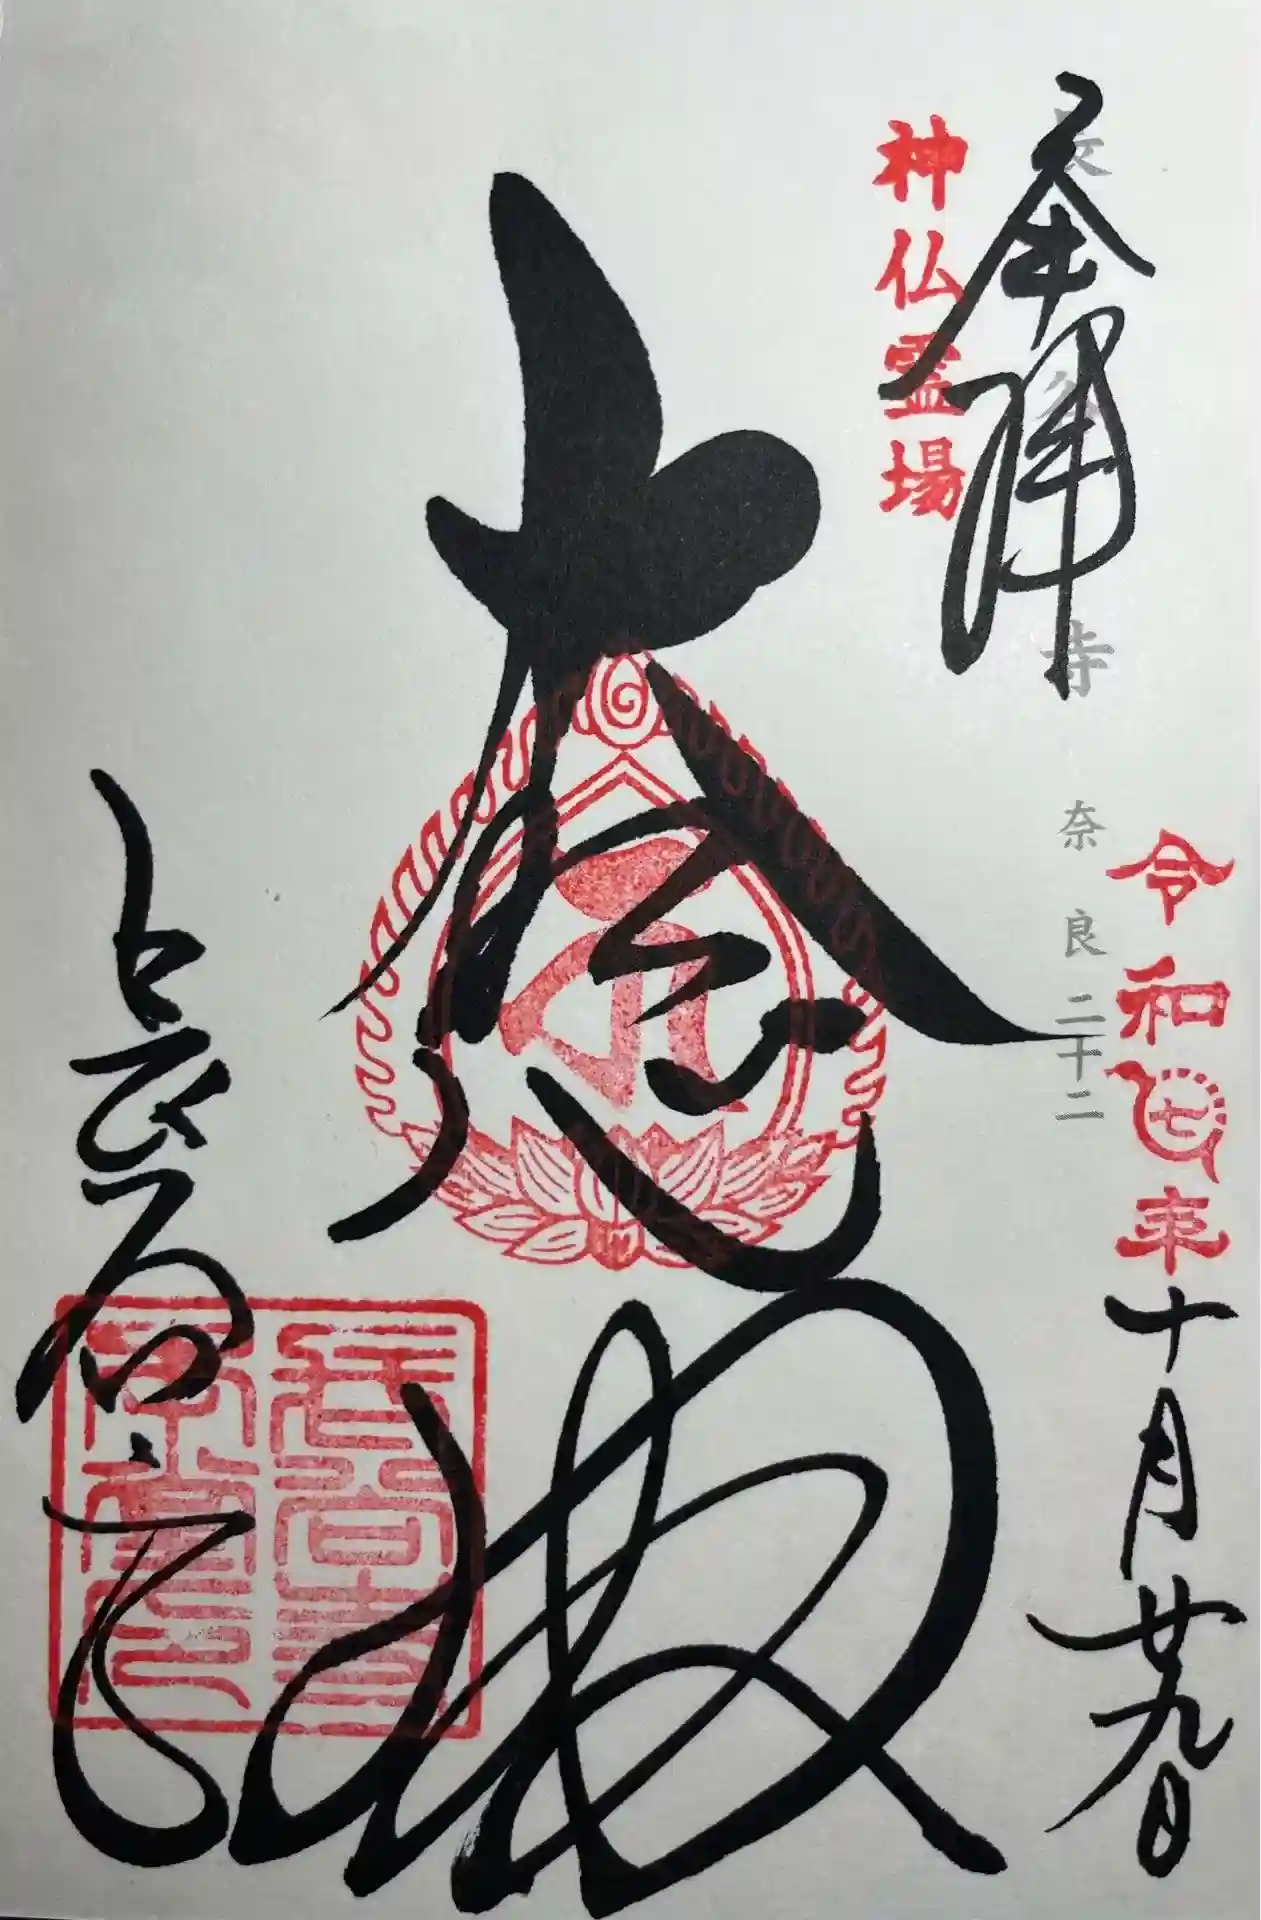 奉拝
長谷寺 奈良二十二
神仏霊場
令和七年十月廿九日
大悲閣
長谷寺